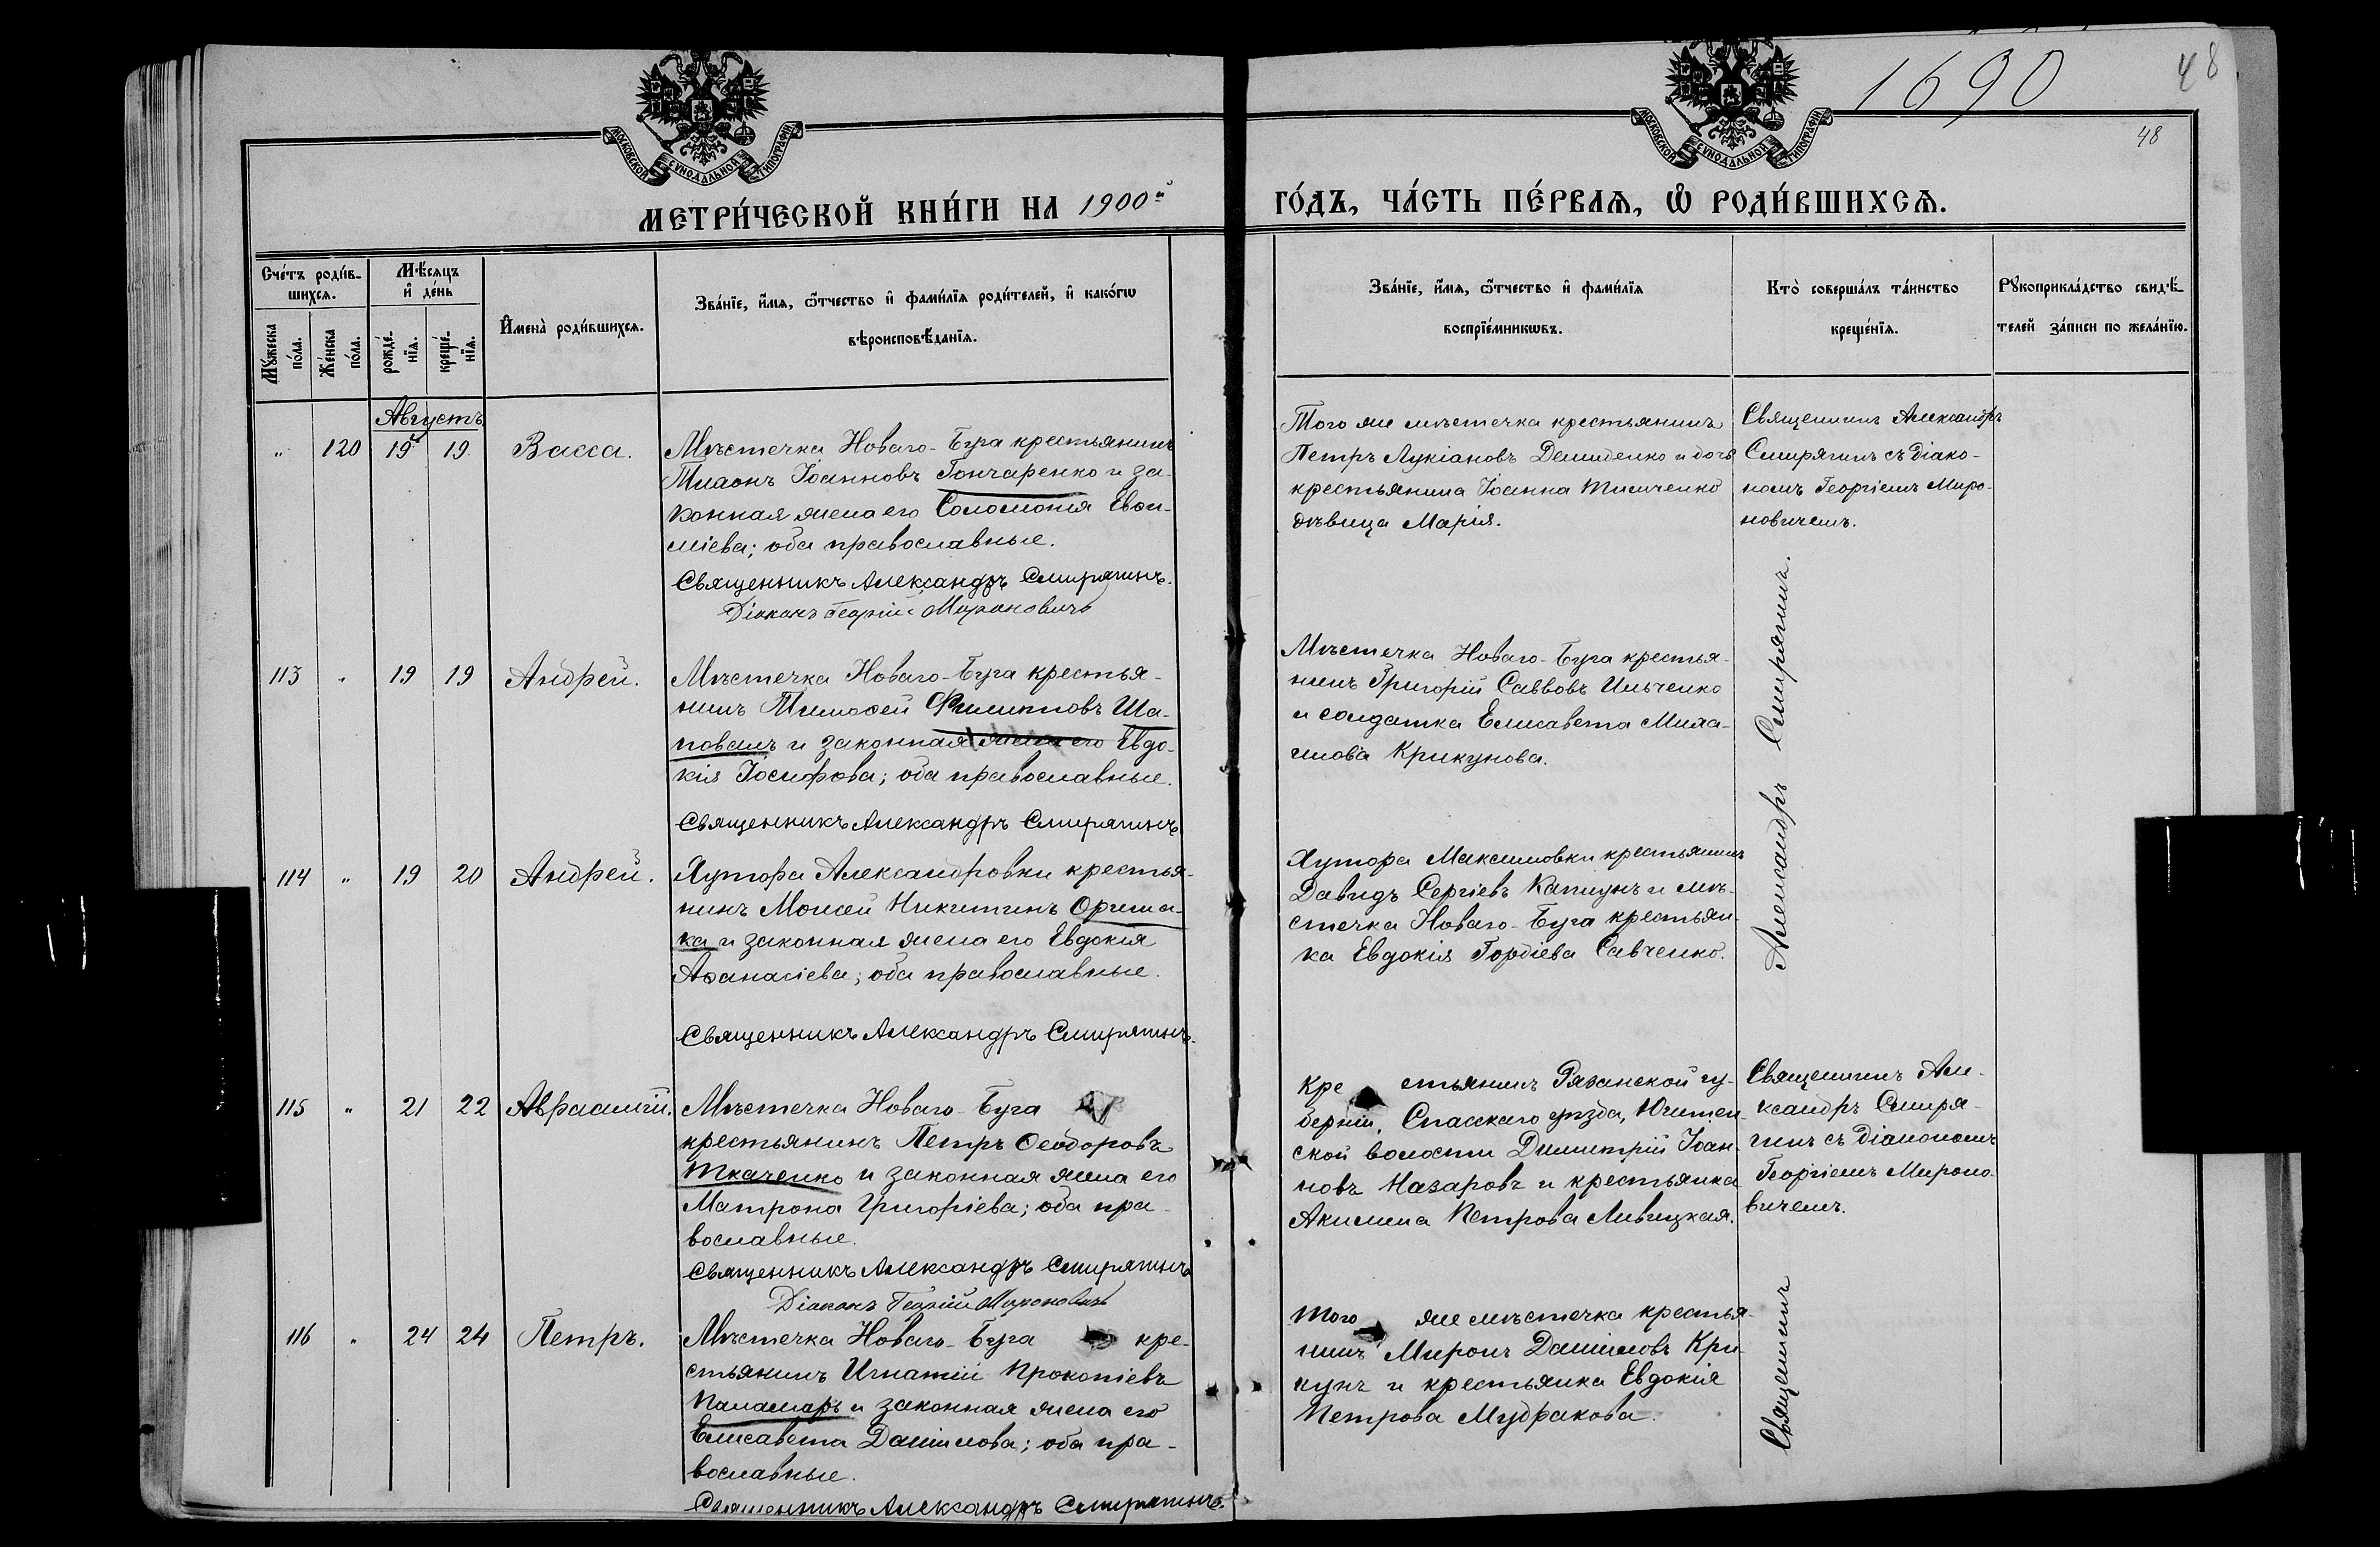 1690
48
48
МОСКОВСКОЙ СѴНОДАЛЬНОЙ ТИПОГРАФІИ
МОСКОВСКОЙ СѴНОДАЛЬНОЙ ТИПОГРАФІИ
МЕТРИ́ЧЕСКОЙ КНИ́ГИ НА 1900й
ГО́ДЪ, ЧА́СТЬ ПЕ́РВАѦ, Ѽ РОДИ́ВШИХСѦ.
Сче́тъ роди́в-
шихсѧ.
Мꙋ́жеска
по́ла.
Же́нска
по́ла.
Мѣ́сѧцъ
и҆ де́нь
рожде́-
нїѧ.
креще́-
нїѧ.
И҆мена̀ роди́вшихсѧ.
Зва́нїе, и҆́мѧ, ѻ҆́тчество и҆ фами́лїѧ роди́телей, и҆ како́гѡ
вѣроисповѣ́данїѧ.
Зва́нїе, и҆́мѧ, ѻ҆́тчество и҆ фами́лїѧ
воспрїе́мникѡвъ.
Кто̀ соверша́лъ та́инство
креще́нїѧ.
Рꙋкоприкла́дство свидѣ́-
телей за́писи по жела́нїю.
Августъ
" 120 19 19 Васса.
Мѣстечка Новаго-Буга крестьянинъ
Іоанновъ Гончаренко и за-
конная жена его Соломонія Евѳи-
міева; оба православные.
Священникъ Александръ Смирягинъ.
Діаконъ Георгій Мироновичъ
Того же мѣстечка крестьянинъ
Петръ Лукіановъ Демиденко и дочь
крестьянина Іоанна Тимченко
дѣвица Марія.
Священникъ Александръ
Смирягинъ съ діако-
номъ Георгіемъ Миро-
новичемъ.
113 " 19 19 Андрей.
Мѣстечка Новаго-Буга крестья-
нинъ Тимоѳей Филипповъ Ша-
повалъ и законная жена его Евдо-
кія Іосифова; оба православные.
Священникъ Александръ Смирягинъ
Мѣстечка Новаго-Буга крестья-
нинъ Григорій Саввовъ Ильченко
и солдатка Елисавета Миха-
илова Крикунова.
Священникъ Александръ Смирягинъ.
114 " 19 20 Андрей.
Хутора Александровки крестья-
нинъ Моисей Никитинъ Ориша-
ка и законная жена его Евдокія
Аѳанасіева; оба православные.
Священникъ Александръ Смирягинъ.
Хутора Максимовки крестьянинъ
Давидъ Сергіевъ Капшунъ и мѣ-
стечка Новаго-Буга крестьян-
ка Евдокія Гордіева Савченко.
115 " 21 22 Авраамій.
Мѣстечка Новаго-Буга
крестьянинъ Петръ Ѳеодоровъ
Ткаченко и законная жена его
Матрона Григоріева; оба пра-
вославные.
Священникъ Александръ Смирягинъ
Діаконъ Георгій Мироновичъ
Крестьянинъ Рязанской гу-
берніи, Спасскаго уѣзда,
ской волости Димитрій Іоан-
новъ Назаровъ и крестьянка
Акилина Петрова Ливицкая.
Священникъ Але-
ксандръ Смиря-
гинъ съ діакономъ
Георгіемъ Мироно-
вичемъ.
116 " 24 24 Петръ.
Мѣстечка Новаго-Буга кре-
стьянинъ Игнатій Прокопіевъ
Паламаръ и законная жена его
Елисавета Даніилова; оба пра-
вославные.
Священникъ Александръ Смирягинъ.
Того же мѣстечка крестья-
нинъ Миронъ Данииловъ Кри-
кунъ и крестьянка Евдокія
Петрова Мудракова.